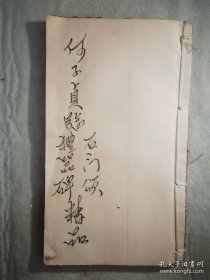 何子貞臨禮器碑精品
石门颂
孔夫子旧书网